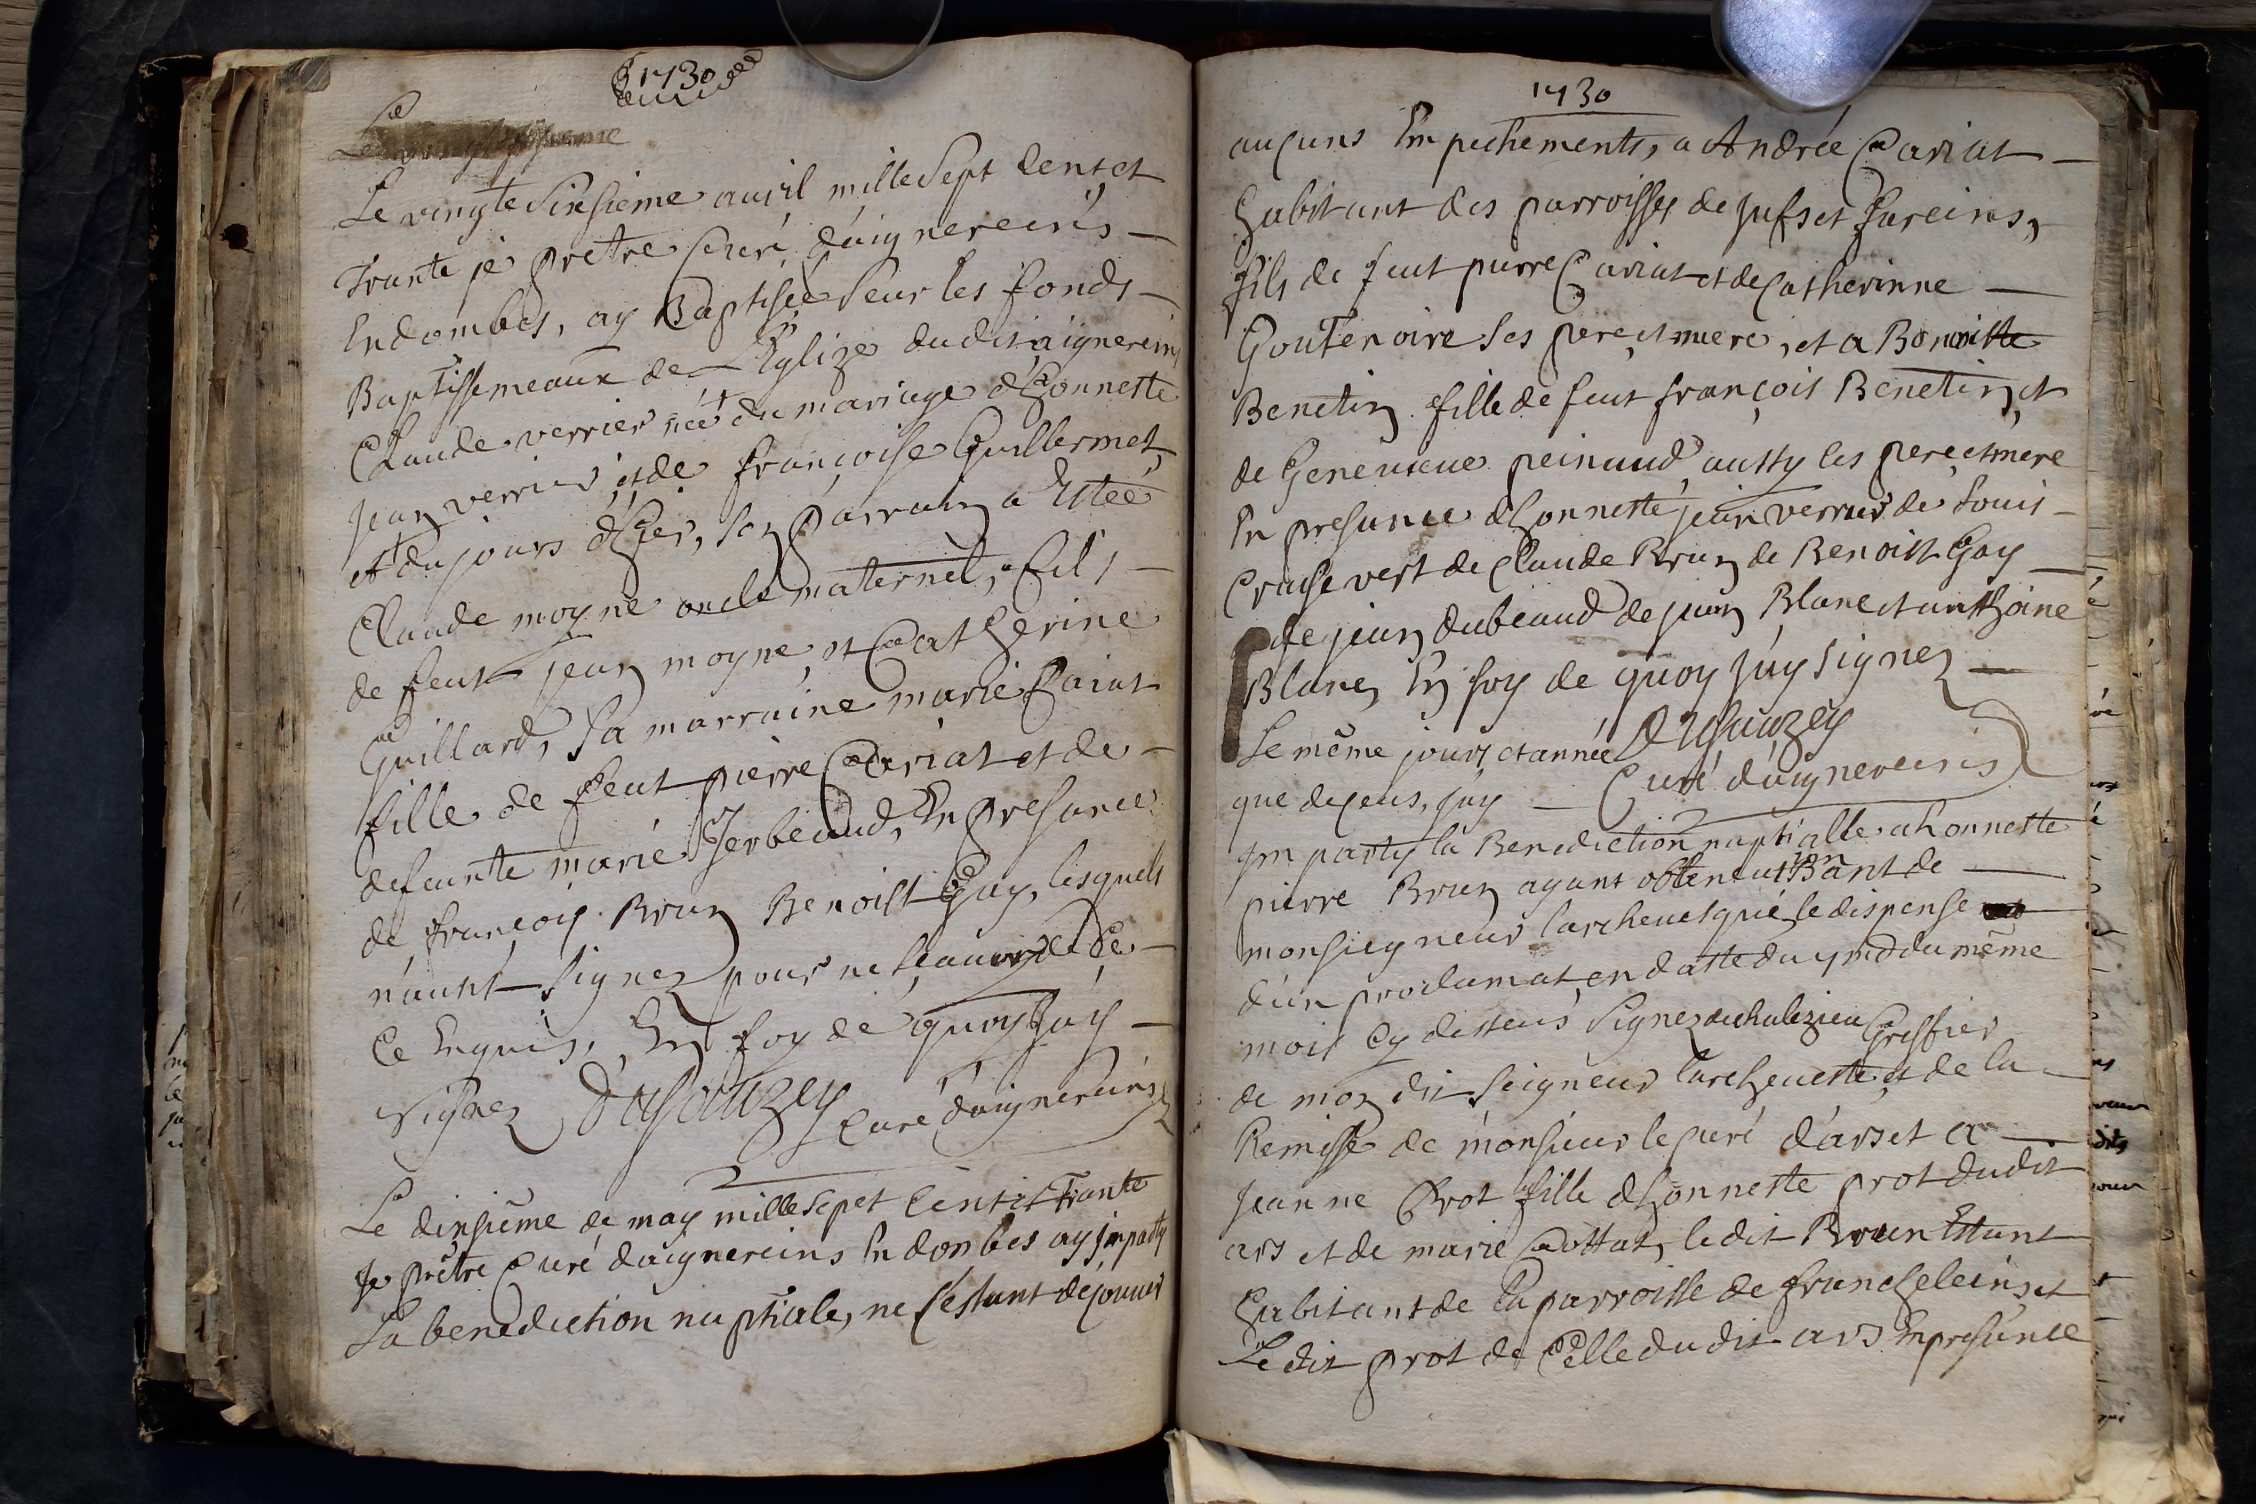 1730
Le
Le vingte Sixsieme auril mille Sept Cent et
Trante je pretre Curé d'aignereins
Endombes, ay Baptisée Seur les fonds
Baptissemeaux de L'Eglize dudit aignereins
Claude verrier née du mariage d'honneste
jean verrier et de françoise Guillermet
et du jours d'hier, son parrain a Estée
Claude moyne oncle maternel, fils
de feut jean moyne et Catherine
Guillard, Sa marraine marie Cariat
fille de feut pierre Cariat et de
defeunte marie Gerbeaud, En presance
de françois Brun Benoist Gay, lesquels
n'aunt Signez pour ne scauoir de ce
ce Enquis, En foy de quoy J'ay
Signez
Curé d'aignereins
Le dixsiéme de may mille Sept Cent et Trante
Je prêtre Curé d'aignereins En dombes ay jmparty
La benediction nuptiale, ne s'estant decouuert
1730
aucuns Empechements, a Andrée Cariat
habitant des parroisses de Jufs et fareins,
fils de feut pierre Cariat et de Catherinne
Goutenoire Ses pere et mere, et a Benoitte
Benetin fille de feut françois Benetin et
de Geneuieue peinaud aussy les pere et mere
En presance d'honneste jean verrier de Louis
Cruse vert de Claude Brun de Benoist Gay
de jean dubeaud de jean Blanc et anthoine
Blanc, En foy de quoy J'ay Signez
Le même jours et année
Curé d'aignereins
que deceus, J'ay
jmparty la Benediction nuptialle a honneste
pierre Brun ayant obtenut Bant de
monsieigneur l'archeuesque le dispense
d'un proclamat en datte du du même
mois Cy desseus Signez dechalezieu Greffier
de mon dit Seigneur l'archeueste, et de la
Remisse de monsieur le curé d'ars et a
Jeanne Prot fille d'honneste prot dudit
ars et de marie Cottat, ledit Brun Estant
habitant de la parroisse de francheleins et
Ledit prot de Celle dudit ars En presance